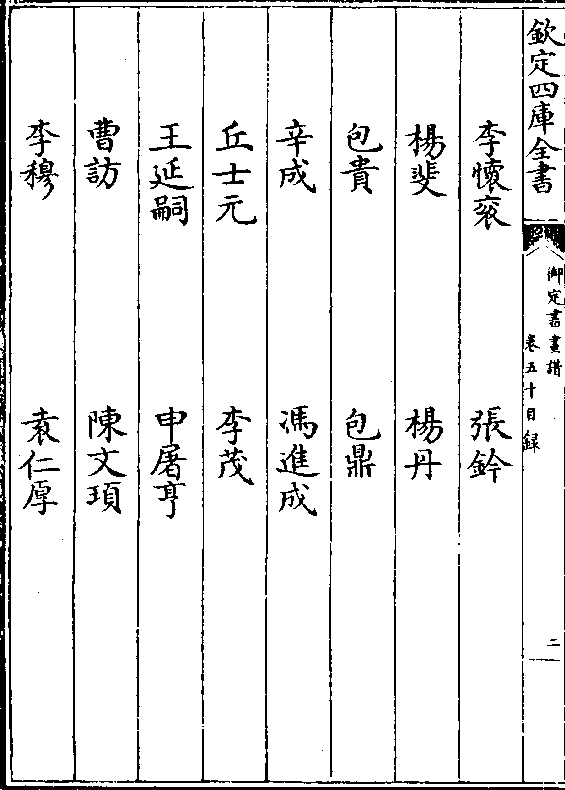 欽定四庫全書
御定書畫譜
卷五十目録
二
李懷衮 張鈐
楊斐 楊丹
包貴 包鼎
辛成 馮進成
丘士元 李茂
王延嗣 申屠亨
曹訪 陳文頊
李穆 袁仁厚